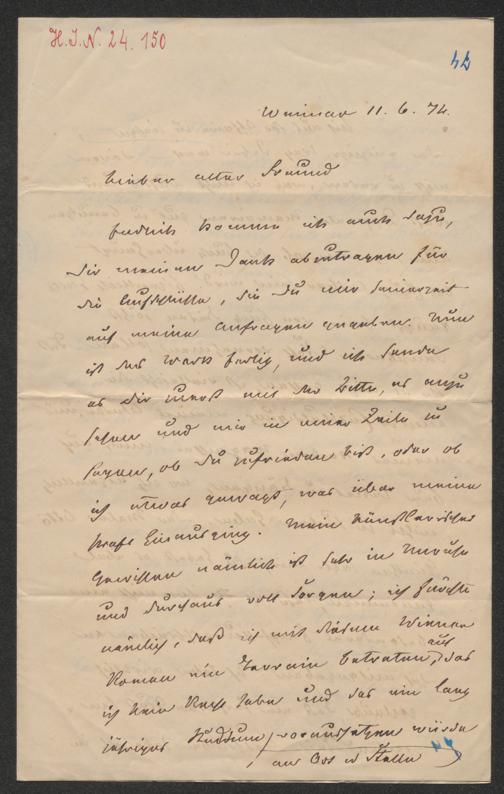 H.I.N. 24. 150
42
Weimar 11. 6. 74.
Lieber alter Freund
Endlich komme ich auch dazu,
Dir meinen Dank abzutragen für
die Aufschlüsse, die Du mir seinerzeit
auf meine Anfragen gegeben. Nun
ist das Werk fertig, und ich sende
es Dir zuerst mit der Bitte, es anzu
sehen und mir in einer Zeile zu
sagen, ob Du zufrieden bist, oder ob
ich etwas gewagt, was über meine
Kraft hinausging. Mein künstlerisches
Gewissen nämlich ist sehr in Unruhe
und durchaus voll Sorgen; ich fürchte
nämlich, daß ich mit diesem Wiener
Roman ein Terrain betreten, auf das
ich kein Recht habe und das ein lang
jähriges Studium voraussetzen würde
an Ort u Stelle